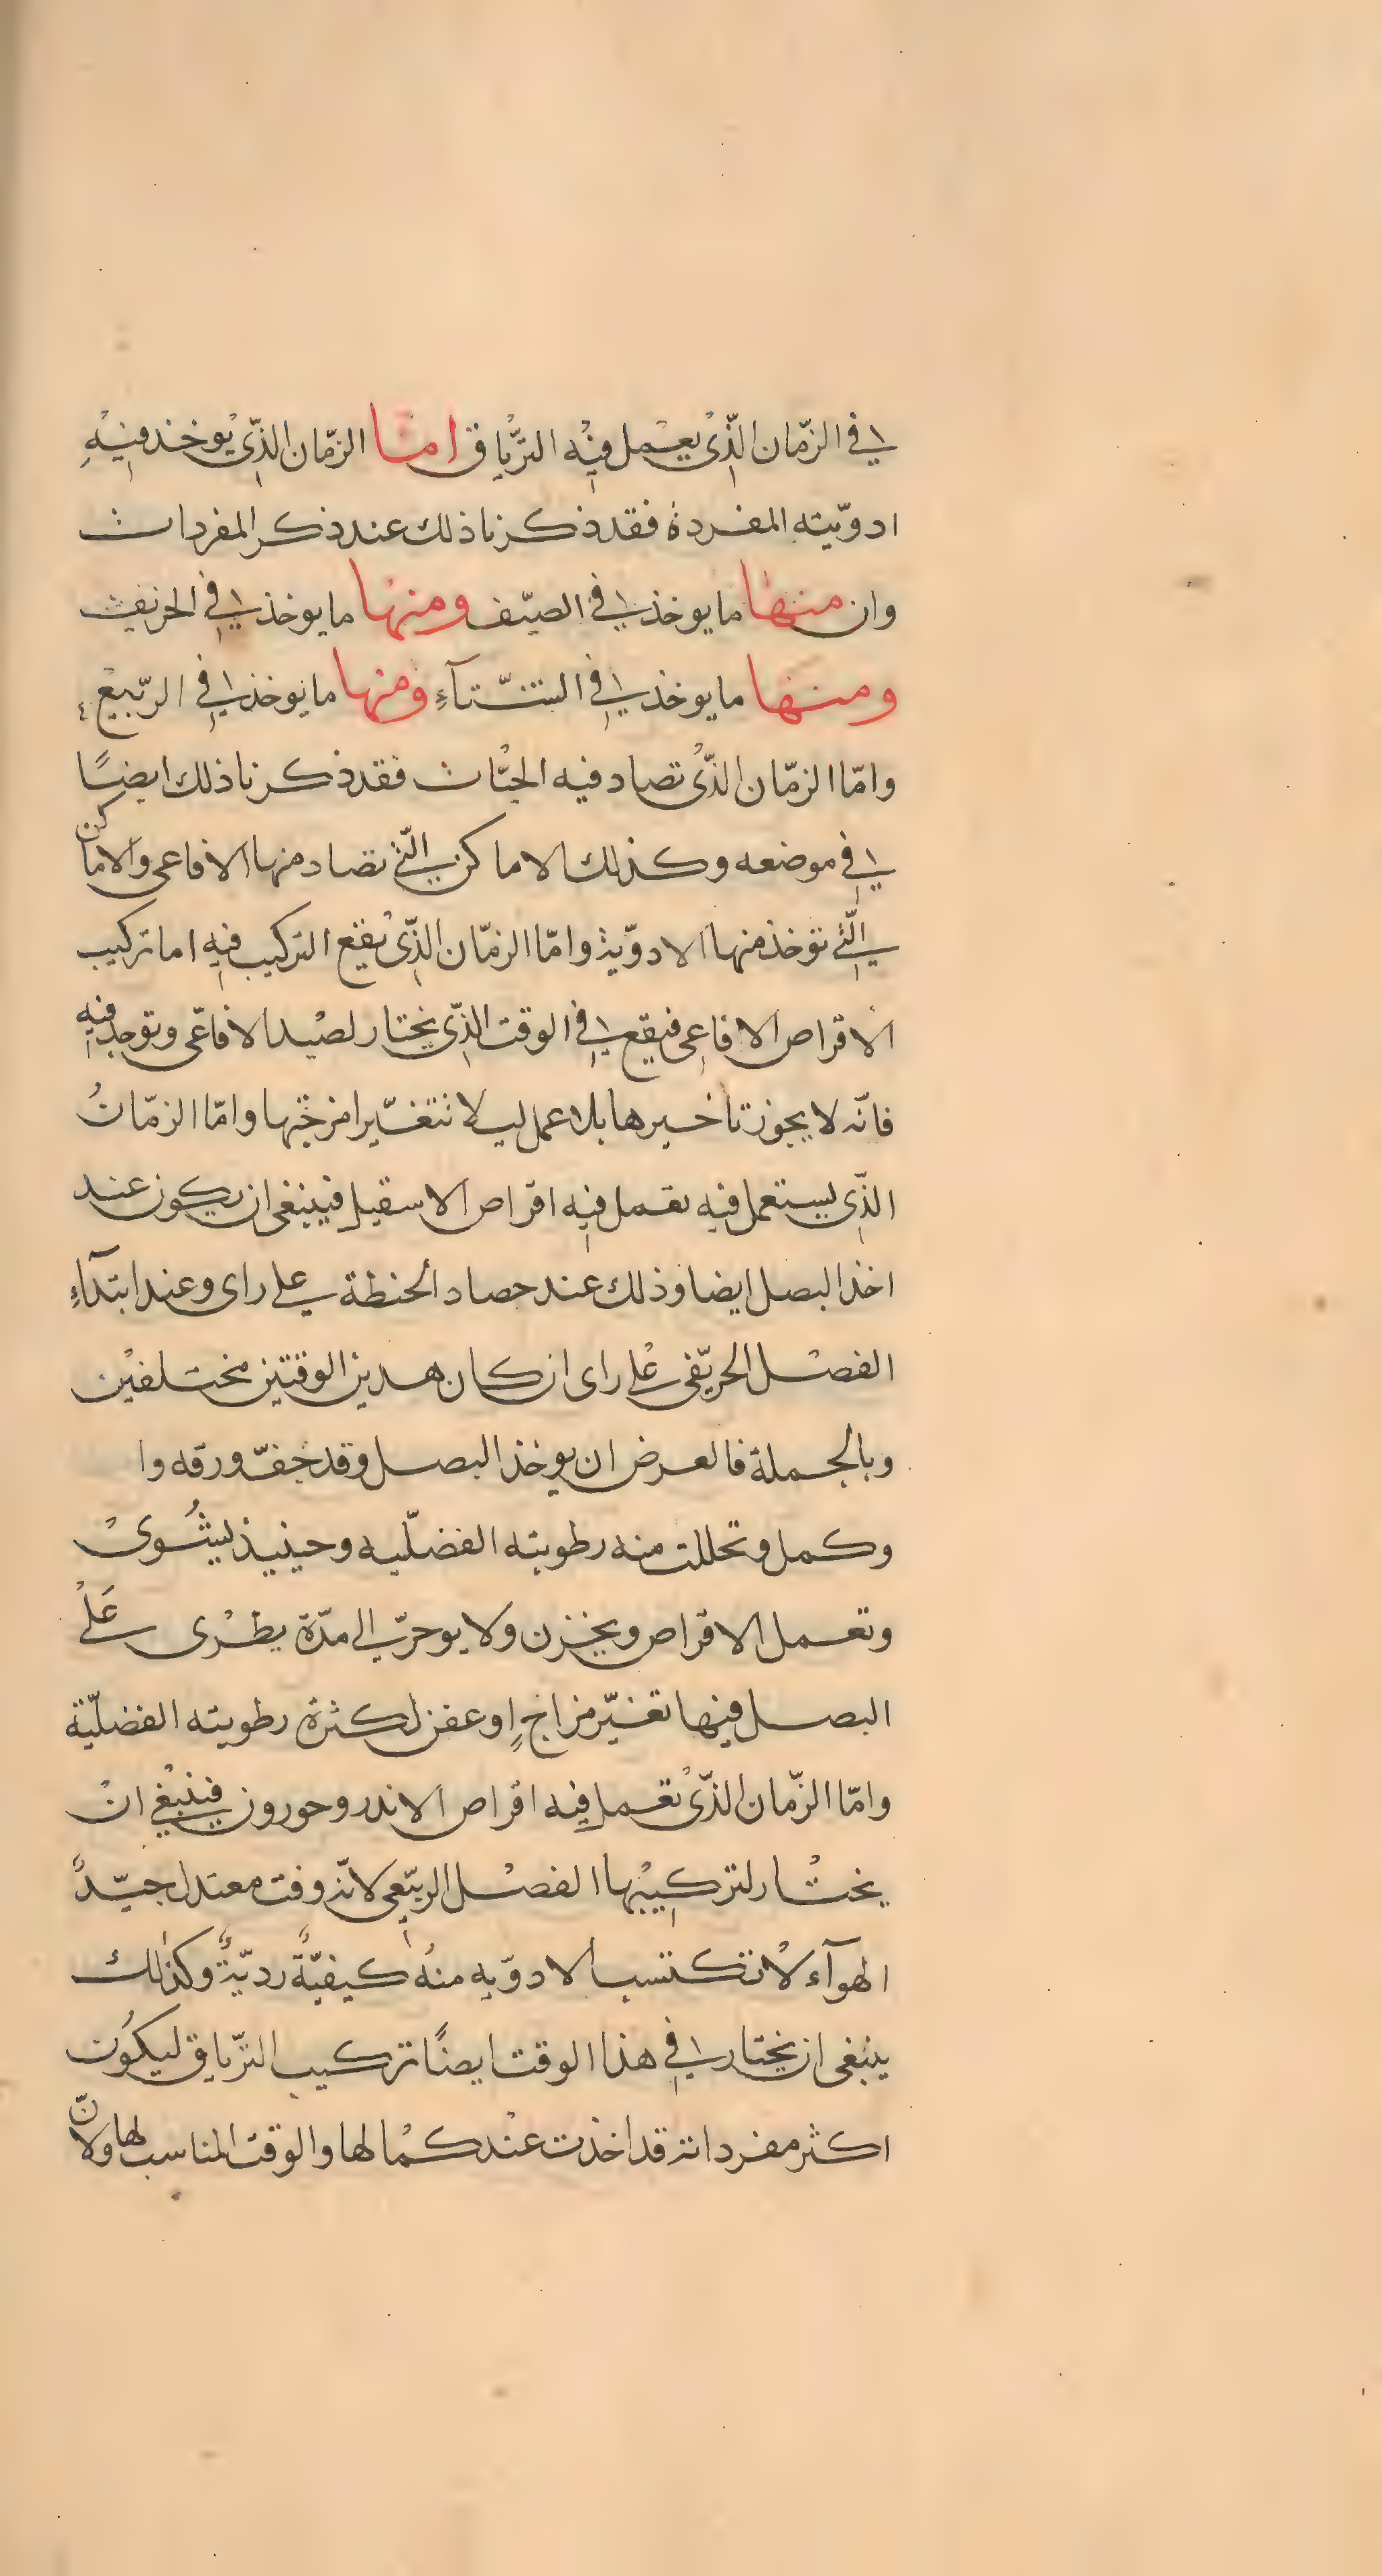 في الزّمان الذّي يعمل فيه الترياق امّا الزمّان الذّي يوخذ فيه
ادويّته المفردة فقد ذكرنا ذلك عند ذكر المفردات
وان منها ما يوخذ في الصيّف ومنها ما يوخذ في الخريف
ومنها ما يوخذ في الشّتآء ومنها ما يوخذ في الربّيع
وامّا الزمّان الذّي تصاد فيه الحيّات فقد ذكرنا ذلك ايضًا
في موضعه وكذلك الاماكن التّي تصاد منها الافاعى والاماكن
التّي تؤخذ منها الادوّية وامّا الزمّان الذّي يقع التركيب فيه اما تركيب
الاقراص الافاعى فيقع في الوقت الذّي يختار لصيد الافاعّى وتوجد فيه
فانّه لا يجوز تاخيرها بلا عمل ليلا تتغيّر امزجّتها وامّا الزمّان
الذّي يستعمل فيه تعمل فيه اقراص الاسقيل فينبغى ان يكون عند
اخذ البصل ايضا وذلك عند حصاد الحنطة على راى وعند ابتدآء
الفصل الخريّفى على راى ان كان هدين الوقتين مختلفين
وبالجملة فالعرض ان يوخذ البصل وقد جفّ ورقه وا
وكمل وتحللت منه رطوبته الفضلّيه وحينيذ ليشُوى
وتعمل الاقراص ويخزن ولا يوخرّ الى مدّة يطرى على
البصل فيها تغيّر مزاج او عفن لكثرة رطوبته الفضليّة
وامّا الزّمان الذّي تعمل فيه اقراص الاندروحورون فينبغي ان
يختار لتركيبها الفصل الربيّعى لانّه وقت معتدل جيّد
الهوآء لا تكتسب الادوّيه منه كيفيّةٌ رديّةٌ وكذلك
ينبغى ان يختار في هذا الوقت ايضًا تركيب الترّياق ليكون
اكثر مفرداته قد اخذت عند كمالها والوقت المناسب لها ولانّ